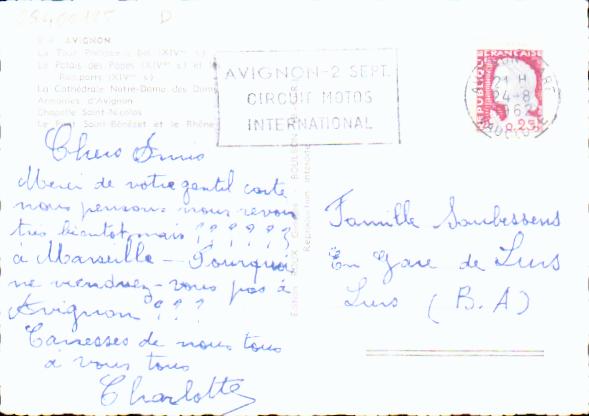 AVIGNON
La Tour Philippe-le-Bel (XIVe s.)
Le Palais des Papes (XIVe s.) et les
Remparts (XIVe s.)
La Cathédrale Notre-Dame des Doms
Armoiries d'Avignon
Chapelle Saint-Nicolas
Le Pont Saint-Bénézet et le Rhône
AVIGNON-2 SEPT.
CIRCUIT MOTOS
INTERNATIONAL
REPUBLIQUE FRANÇAISE
21 H
24-8
1962
0,25
Chers Amis
Merci de votre gentil carte
nous pensons nous revoir
tres bientot mais ??????
à Marseille - Pourquoi
ne viendrez-vous pas à
Avignon ???
Caresses de nous tous
à vous tous
Charlotte
Famille Soubessens
En Gare de Luis
Luis (B.A)
Reproduction interdite